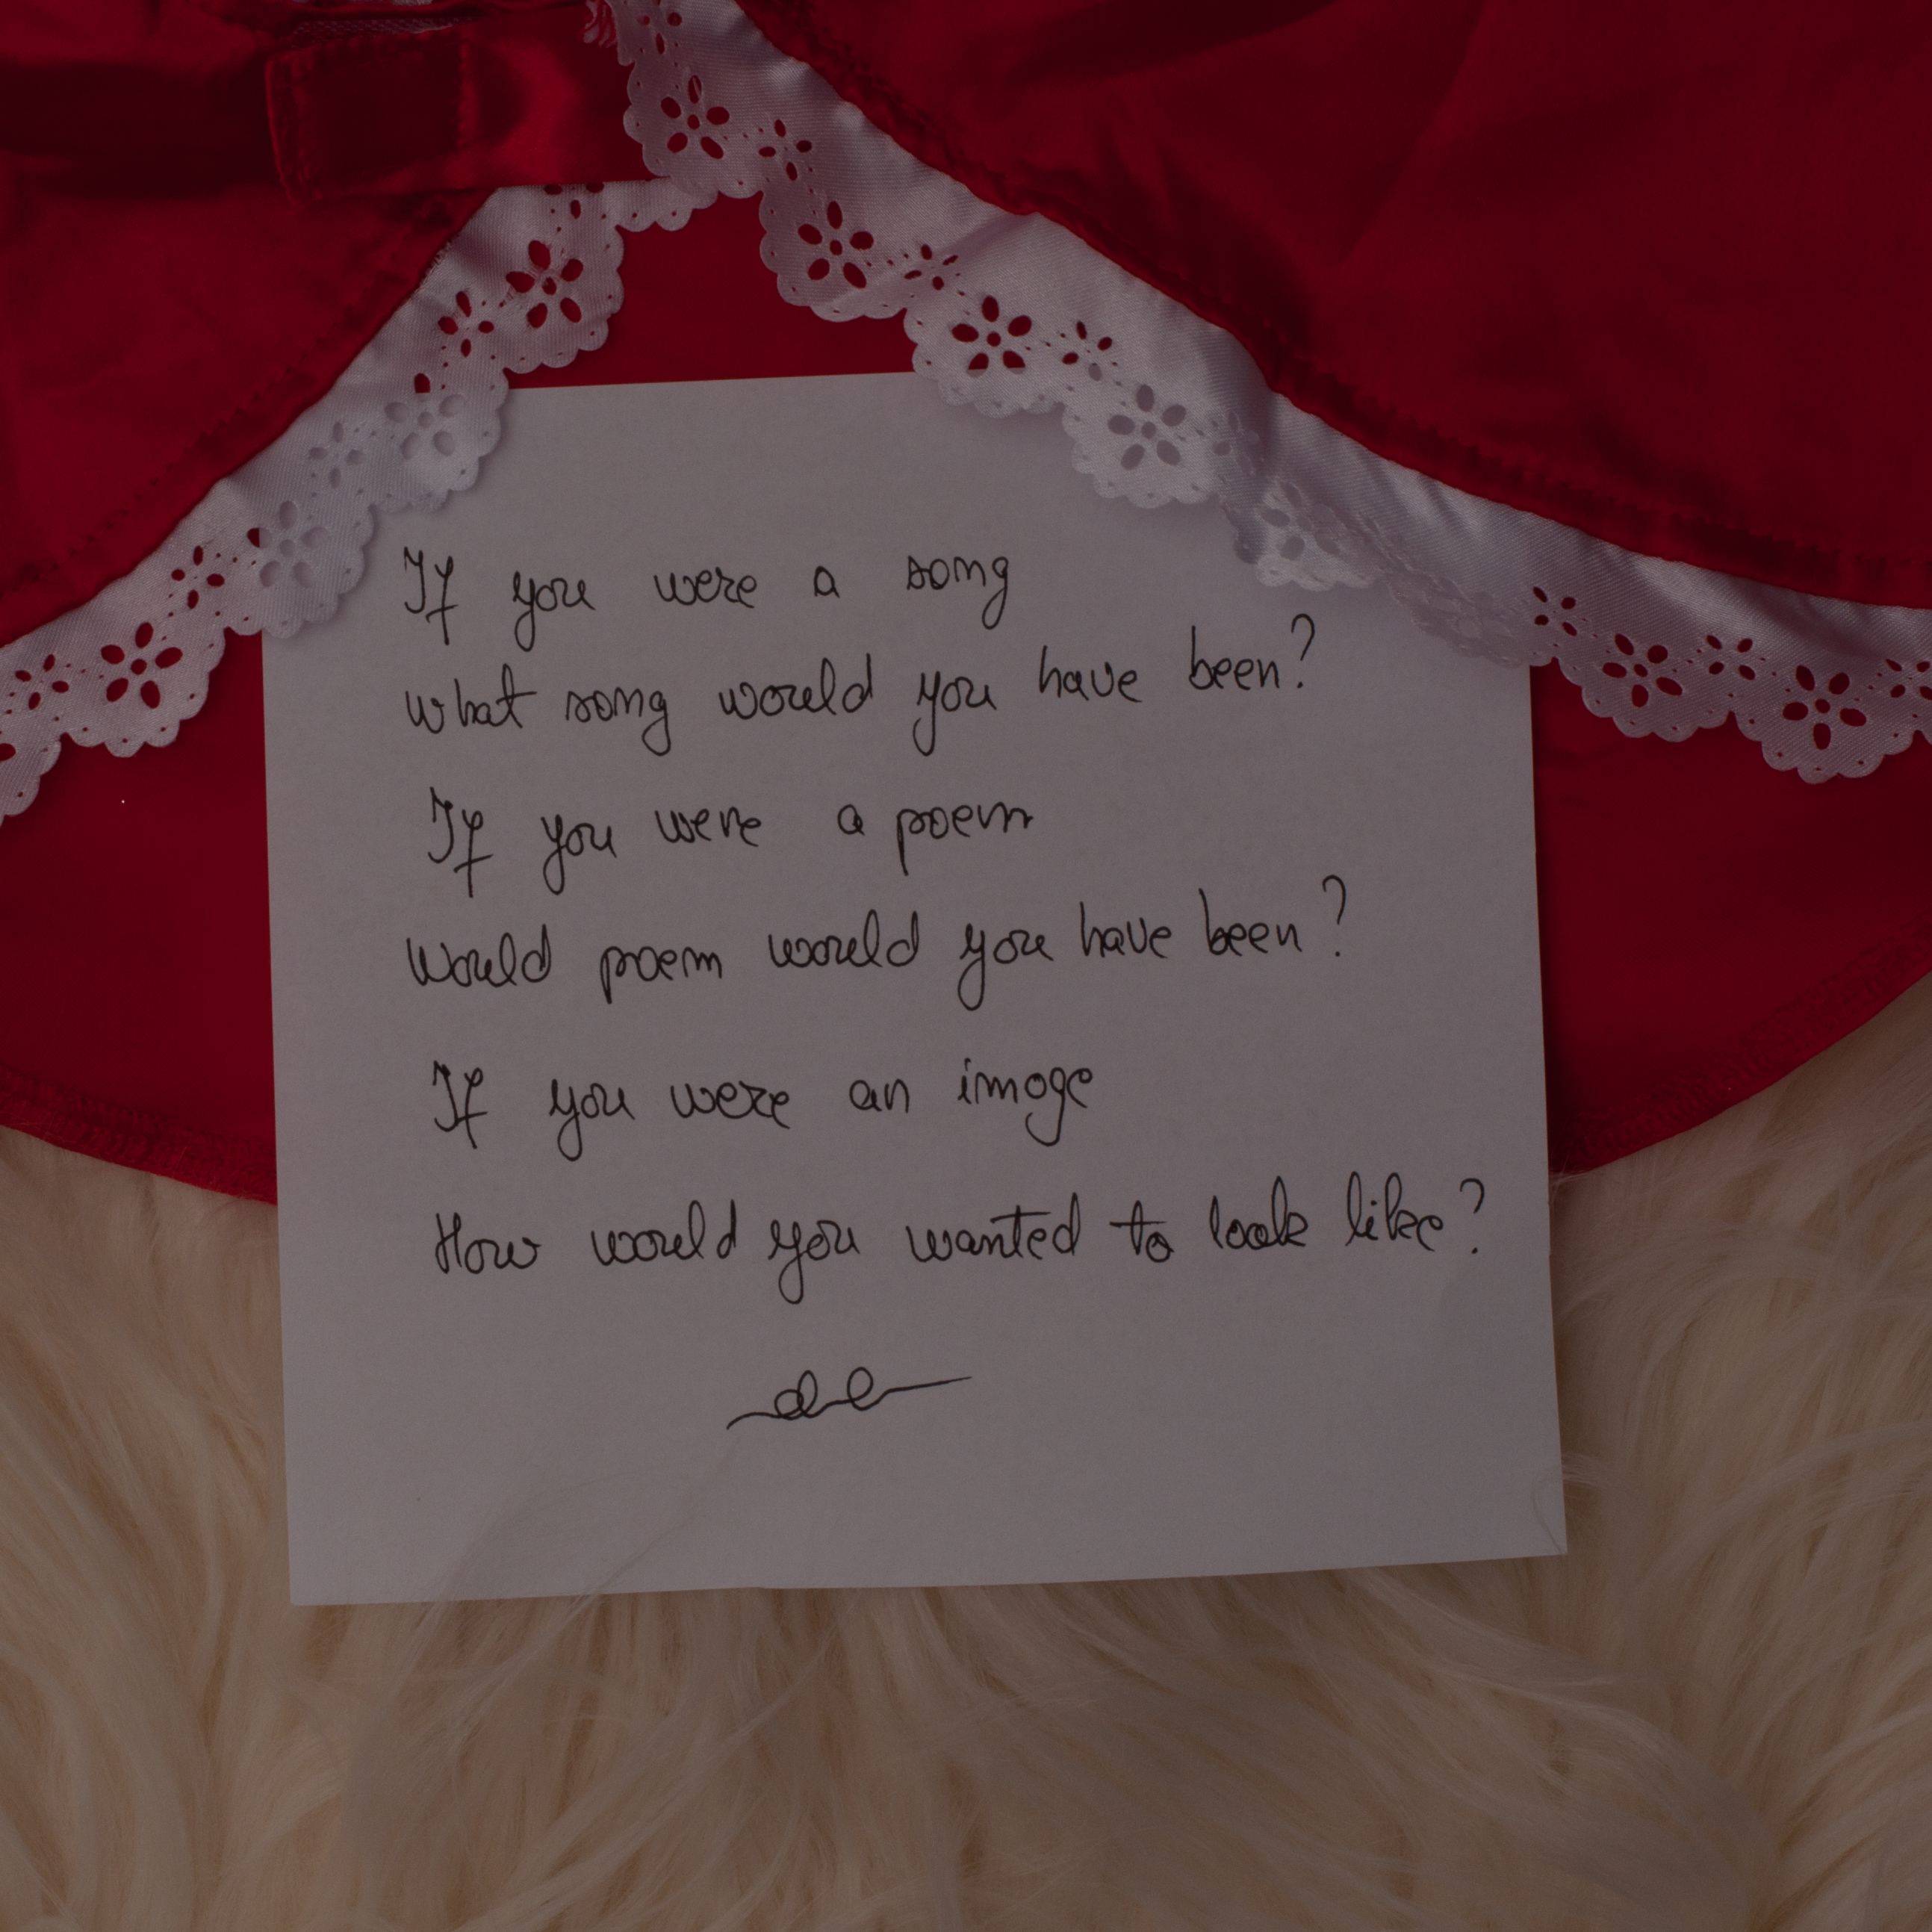 If you were a song
What song would you have been?
If you were a poem
Would poem would you have been?
If you were an image
How would you wanted to look like?